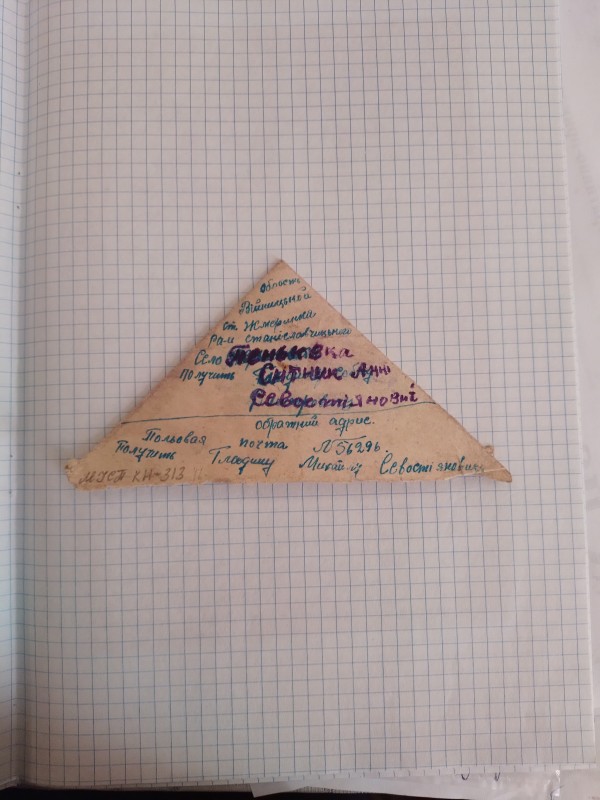 области
Вінницькой
ст. Жмеринка
Раи станіславчицького
Село Пеньковка
Получить Сирник Анні
Севостіяновні
обратний адрес.
Польовая почта N 56296
Получить Гладишу Михайлу Севостіяновичу
МИСП-КН-313